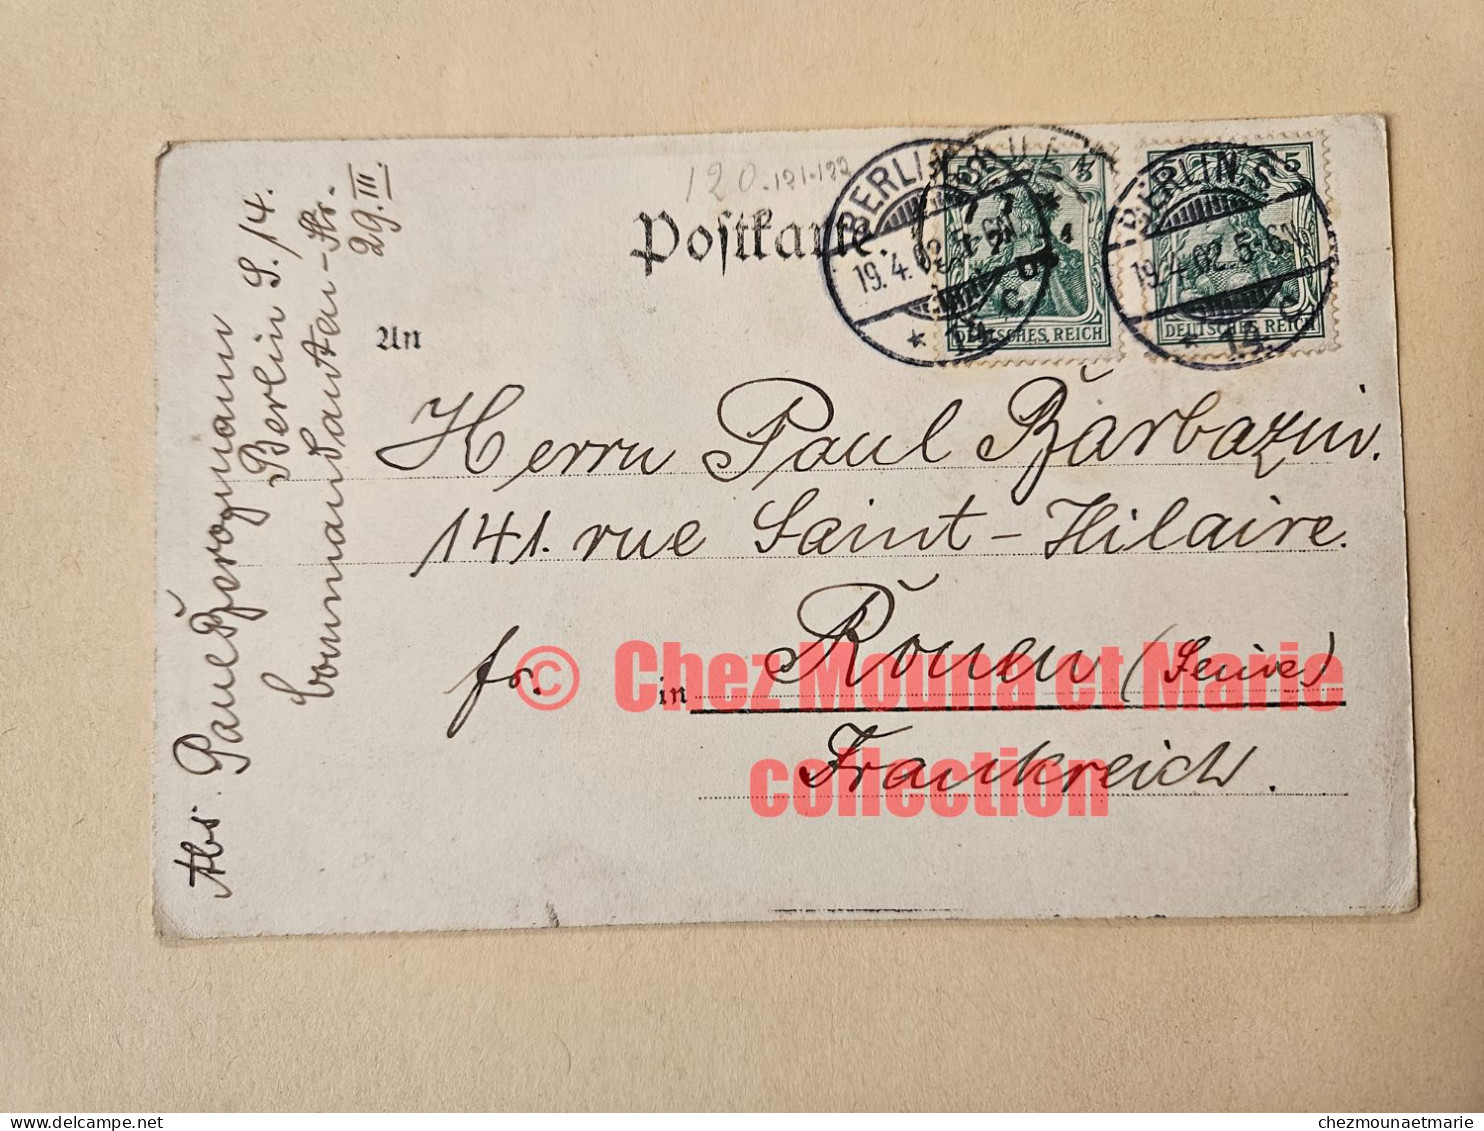 120.121.122
Postkarte.
BERLIN S.
19.4.02.5-6N.
* 14c
5 5
DEUTSCHES REICH
BERLIN S.
19.4.02.5-6N.
* 14c
5 5
DEUTSCHES REICH
An
Herrn Paul Barbazin.
141. rue Saint-Hilaire.
fr. in Rouen (Seine)
Frankreich.
Abs. Paul
Berlin S. 14.
Commandanten-Str.
29.III
© Chez Mouna et Marie
collection
chezmounaetmarie